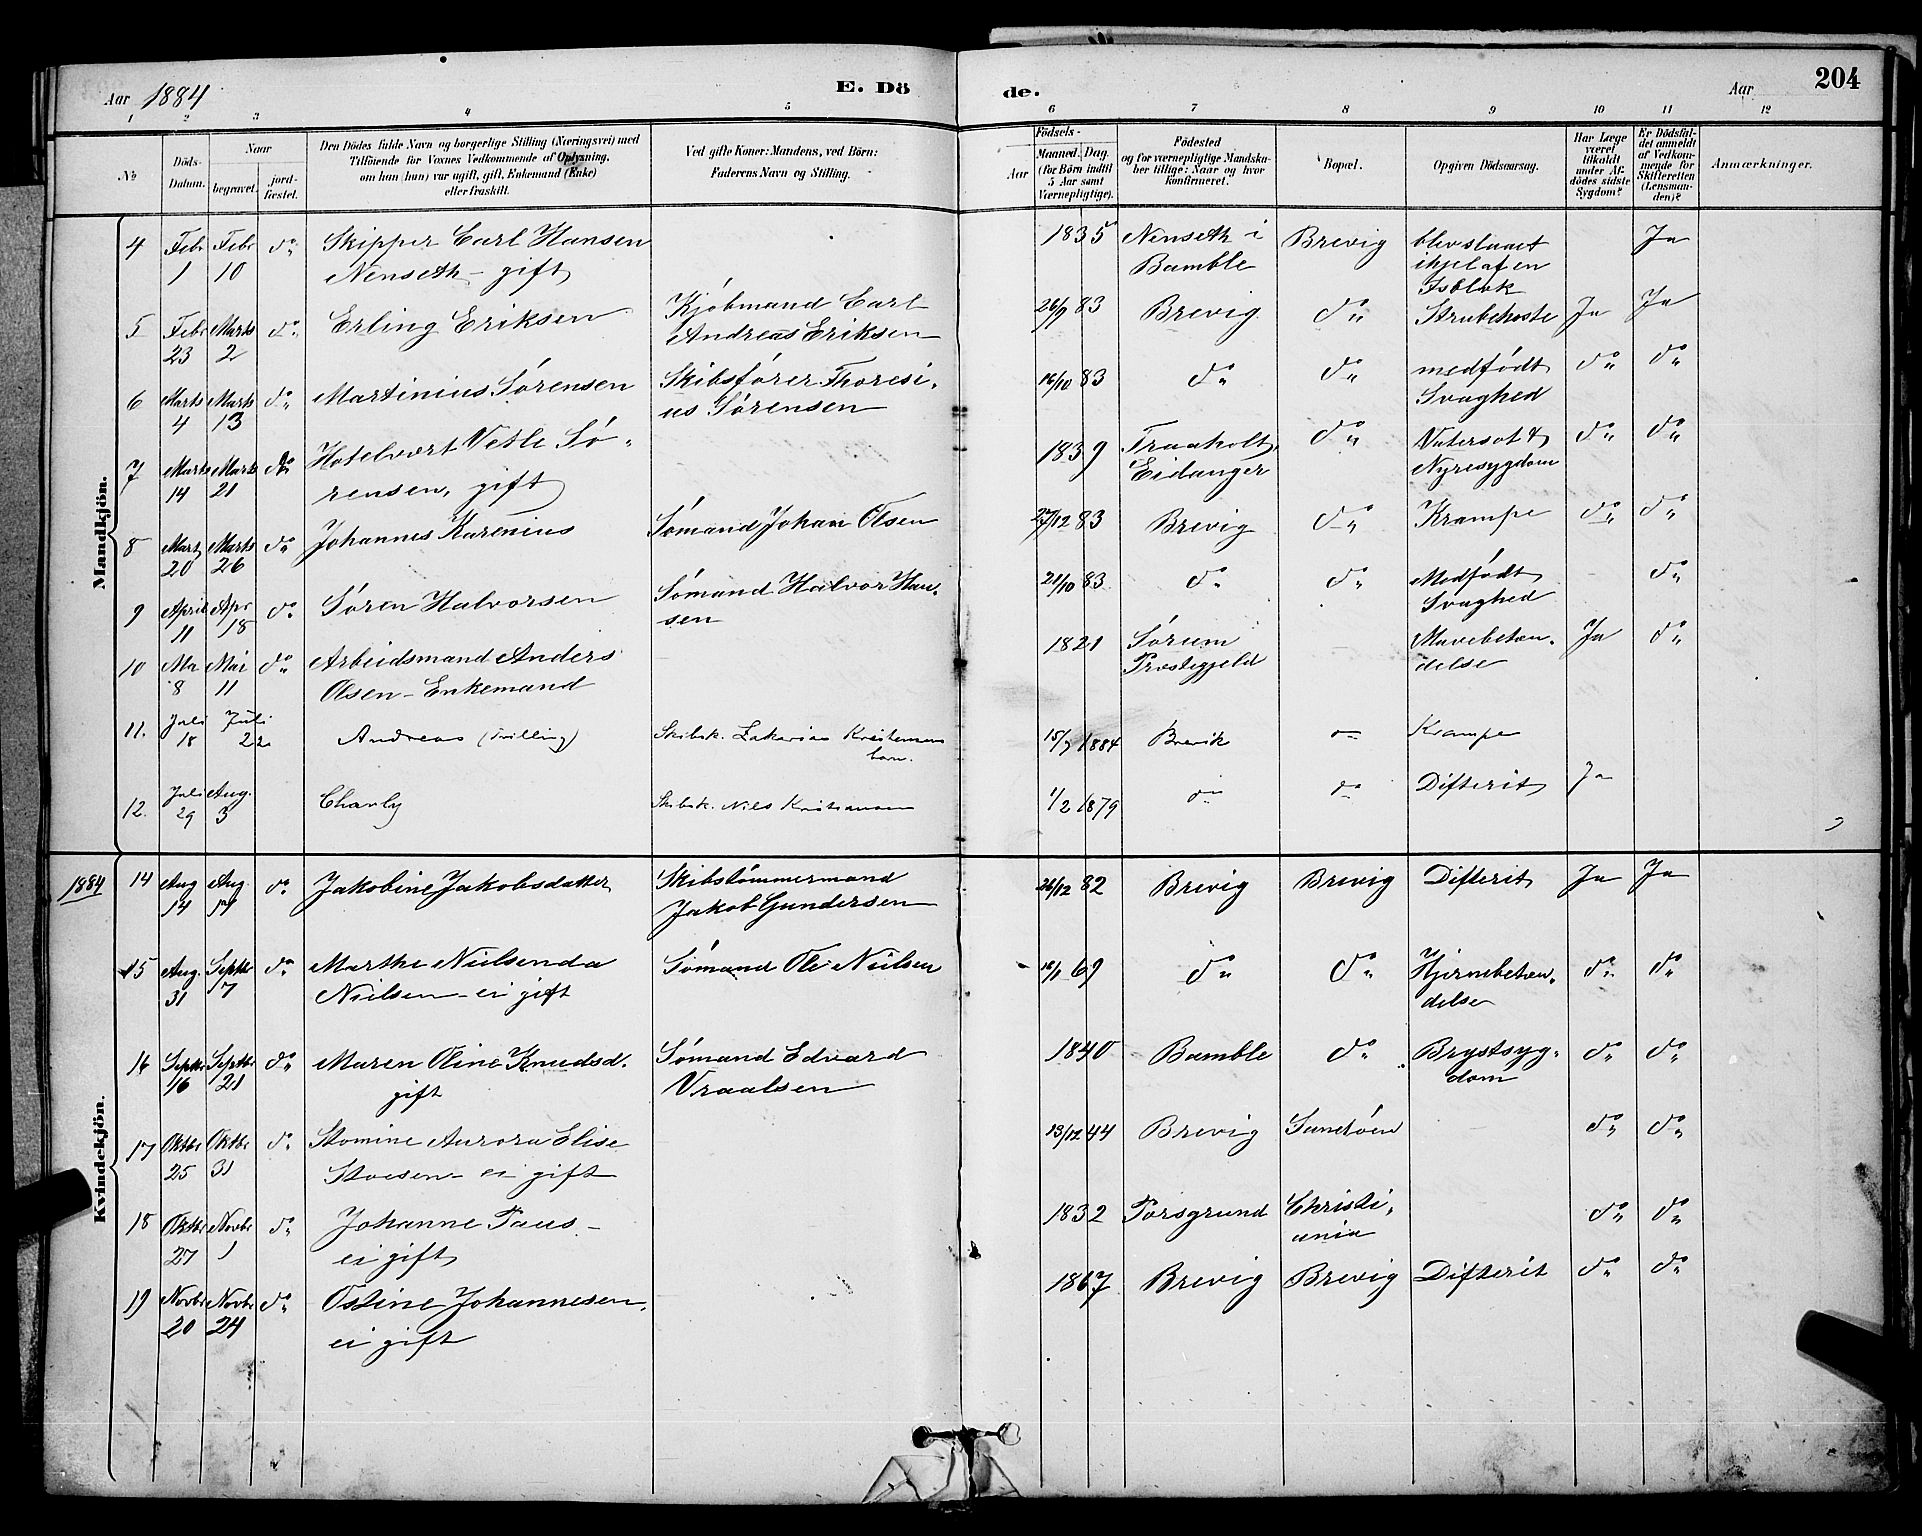 Aar 1884
E. Dö
de.
Aar
204
1 2 3 4 5 6 7 8 9 10 11 12
No
Döds-Datum.
Naar
begravet.
jord-fæstet.
Den Dödes fulde Navn og borgerlige Stilling (Næringsvei) med
Tilföiende for Voxnes Vedkommende af Oplysning,
om han (hun) var ugift, gift, Enkemand (Enke)
eller fraskilt.
Ved gifte Koner: Mandens, ved Börn:
Faderens Navn og Stilling.
Födsels-
Aar
Maaned. Dag.
(for Börn indtil
5 Aar samt
Værnepligtige).
Födested
og for værnepligtige Mandska-
ber tillige: Naar og hvor
konfirmeret.
Bopæl.
Opgiven Dödsaarsag.
Har Læge
været
tilkaldt
under Af-
dödes sidste
Sygdom?
Er Dödsfal-
det anmeldt
af Vedkom-
mende for
Skifteretten
(Lensman-
den)?
Anmærkninger.
Mandkjön.
4 Febr 1 Febr 10 do Skipper Carl Hansen 1835 Nenseth i Brevig blev slaaet Ja
Nenseth - gift Bamble ihjel af en
Isblok
5 Febr 23 Marts 2 do Erling Eriksen Kjöbmand Carl 26/9 83 Brevig do Strubehoste Ja Ja
Andreas Eriksen
6 Marts 4 Marts 13 do Martinius Sørensen Skibsfører Thoresi- 16/10 83 do do medfødt do do
us Sørensen Svaghed
7 Marts 14 Marts 21 do Hotelvert Vetle Sø- 1839 Traaholt, do Vatersot & do do
rensen, gift Eidanger Nyresygdom
8 Mart 20 Marts 26 do Johannes Karenius Sømand Johan Olsen 27/12 83 Brevig do Krampe do do
9 April 11 Apr 18 do Søren Halvorsen Sømand Halvor Han- 21/10 83 do do Medfødt - do
sen Svaghed
10 Ma 8 Mai 11 do Arbeidsmand Anders - 1821 Sørum - Mavebetæn- Ja do
Olsen - Enkemand Præstegjeld delse
11. Juli 18 Juli 22 Andreas (Tvilling) Skibsk. Zakarias Kristensens 15/7 1884 Brevik do Krampe
barn.
12. Juli 29 Aug. 3 Charly Skibsk. Nils Kristiansen 1/2 1879 do do Difterit Ja
1884
Kvindekjön.
14 Aug 14 Aug. 17 do Jakobine Jakobsdatter Skibstømmermand 26/12 82 Brevig Brevig Difterit Ja Ja
Jakob Gundersen
15 Aug. 31 Septbr 7 do Marthe Nielsenda Sømand Ole Nielsen 69 do do Hjernebetæn- do do
Nielsen - ei gift delse
16 Septbr 16 Septbr 21 do Maren Oline Knudsd. Sømand Edvard 1840 Bamble do Brystsyg- do do
gift Vraalsen dom
17 Oktbr 25 Oktbr 31 do Stomine Aurora Elise 13/12 44 Brevig Sandøen do do
Stoesen - ei gift
18 Oktbr 27 Novbr 1 do Johanne Paus - 1832 Porsgrund Christi- do do
ei gift ania
19 Novbr 20 Novbr 24 do Ostine Johannesen, 1867 Brevig Brevig Difterit do do
ei gift